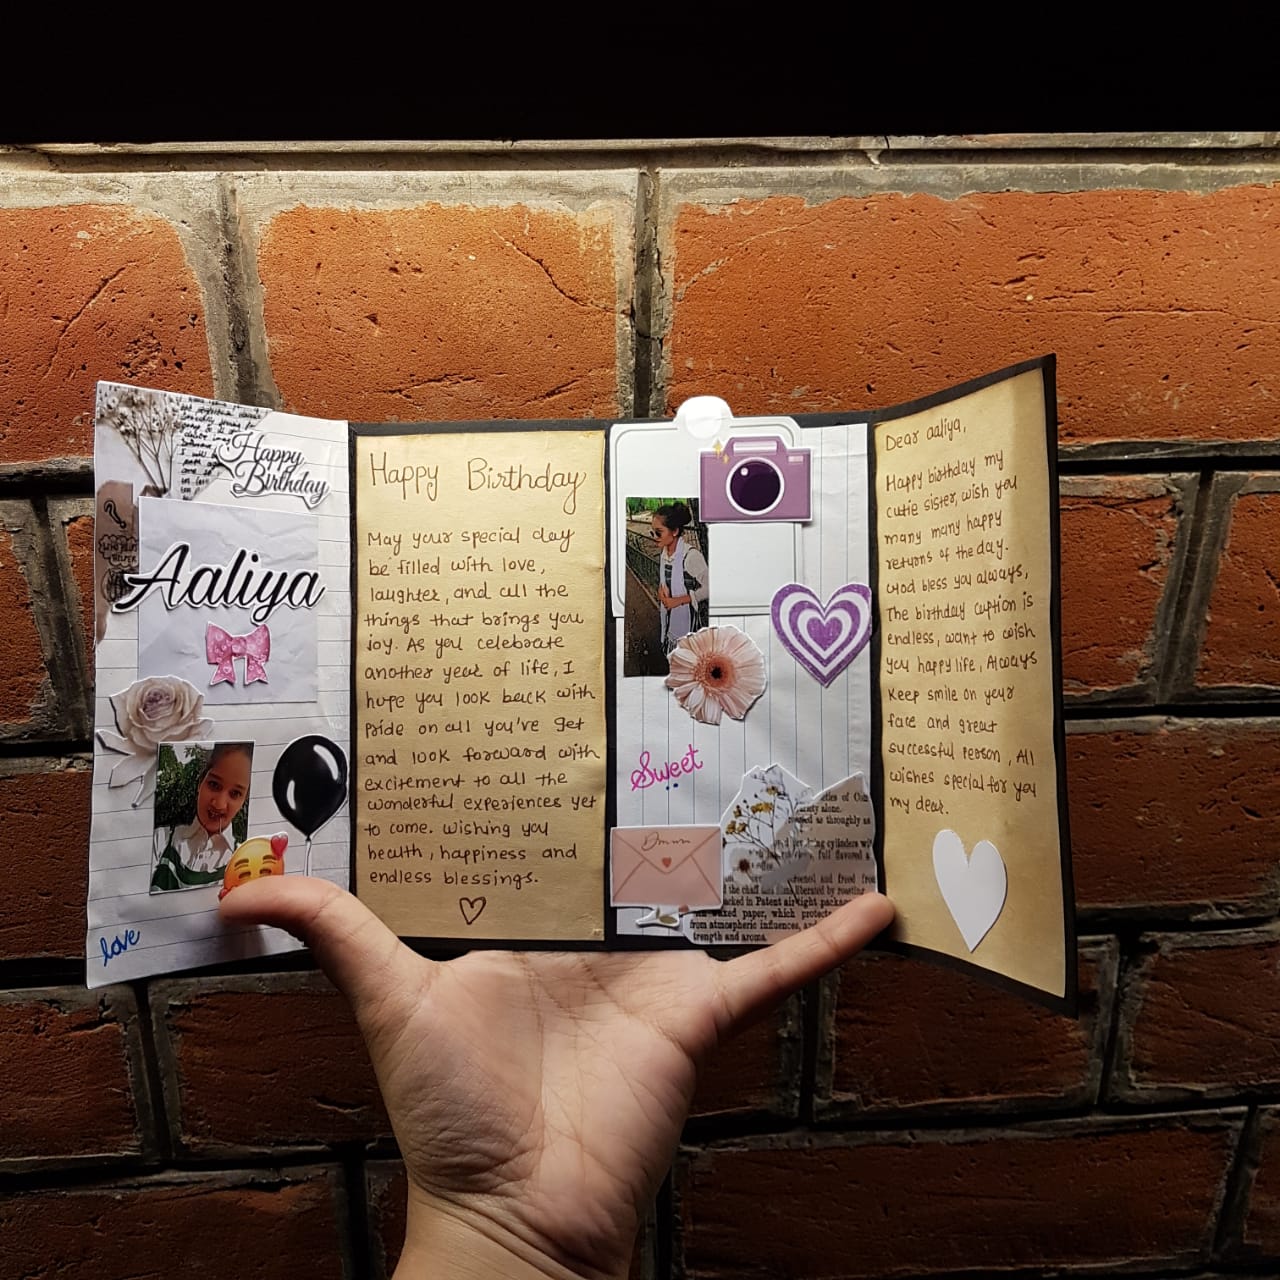 Happy
Birthday
Aaliya
love
Happy Birthday
May your special day
be filled with love,
laughter, and all the
things that brings you
joy. As you celebrate
another year of life, I
hope you look back with
pride on all you've get
and look forward with
excitement to all the
wonderful experiences yet
to come. wishing you
health, happiness and
endless blessings.
Sweet
as thoroughly as
cylinders
full flavored
and freed from
the chaff
liberated by roasting
Patent air-tight
waxed paper, which
from atmospheric influences,
strength and aroma.
Dear aaliya,
Happy birthday my
cutie sister, wish you
many many happy
returns of the day.
God bless you always,
The birthday caption is
endless, want to wish
you happy life, Always
keep smile on your
face and great
successful person, All
wishes special for you
my dear.